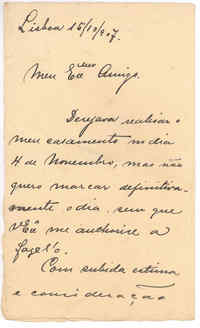 Lisboa 15/10/907.
Meu Exmo Amigo.
Desejava realisar o
meu casamento no dia
4 de Novembro, mas não
quero marcar definitiva-
mente o dia sem que
VExª me authorise a
fazel-o.
Com subida estima
e consideração